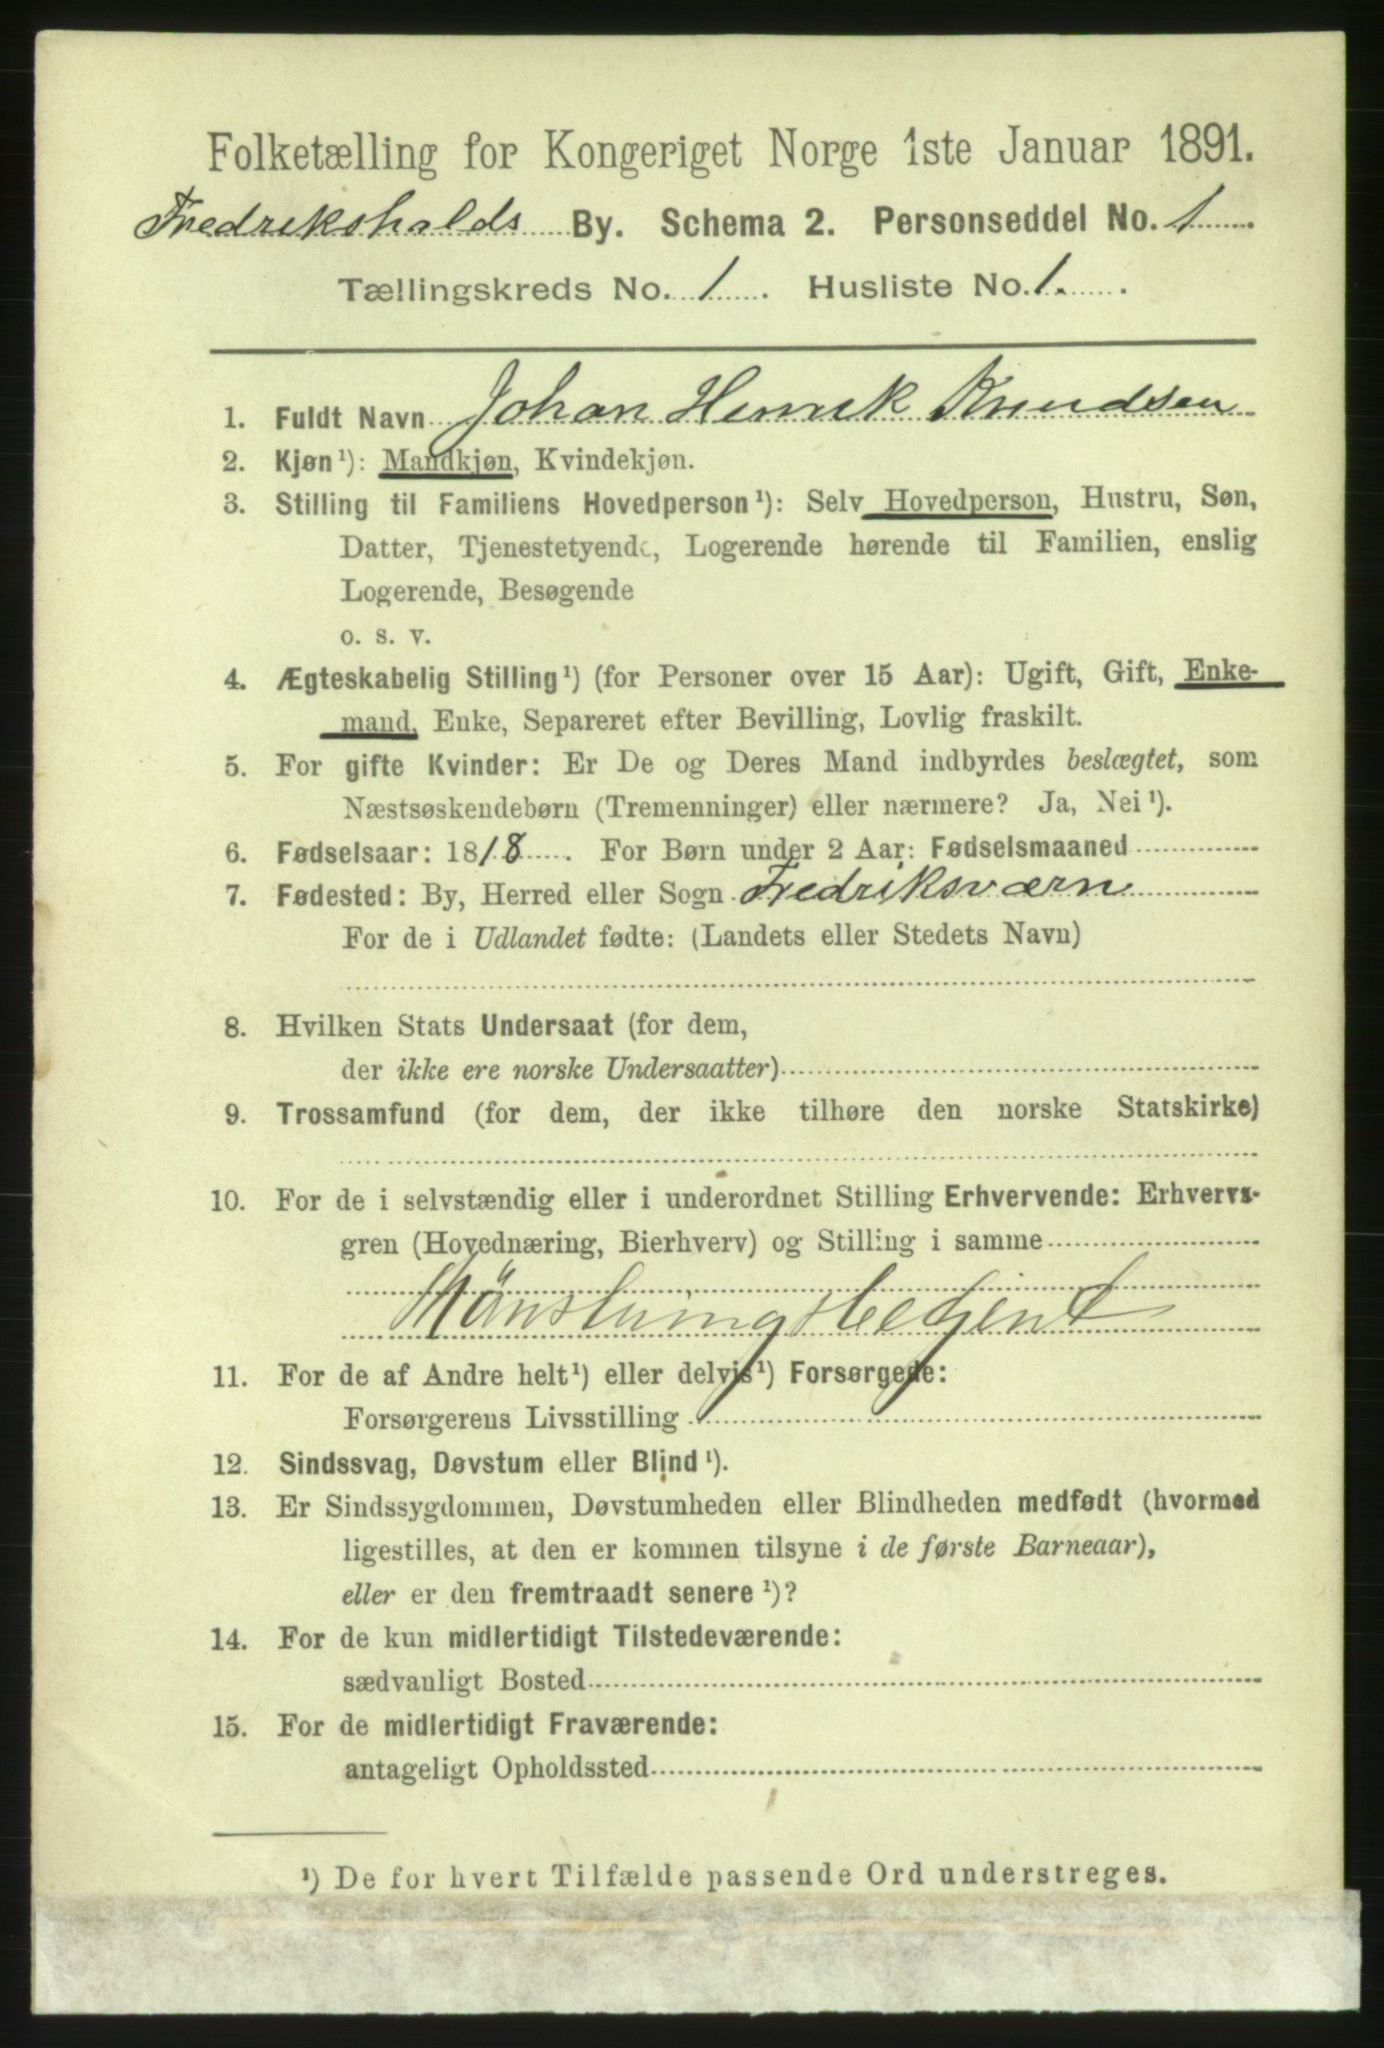 Folketælling for Kongeriget Norge 1ste Januar 1891.
Fredrikshalds By. Schema 2. Personseddel No. 1
Tællingskreds No. 1. Husliste No. 1.
1. Fuldt Navn Johan Henrik Knudsen
2. Kjøn¹): Mandkjøn, Kvindekjøn.
3. Stilling til Familiens Hovedperson¹): Selv Hovedperson, Hustru, Søn,
Datter, Tjenestetyende, Logerende hørende til Familien, enslig
Logerende, Besøgende
o. s. v.
4. Ægteskabelig Stilling¹) (for Personer over 15 Aar): Ugift, Gift, Enke-
mand, Enke, Separeret efter Bevilling, Lovlig fraskilt.
5. For gifte Kvinder: Er De og Deres Mand indbyrdes beslægtet, som
Næstsøskendebørn (Tremenninger) eller nærmere? Ja, Nei¹).
6. Fødselsaar: 1818. For Børn under 2 Aar: Fødselsmaaned
7. Fødested: By, Herred eller Sogn Fredriksværn
For de i Udlandet fødte: (Landets eller Stedets Navn)
8. Hvilken Stats Undersaat (for dem,
der ikke ere norske Undersaatter)
9. Trossamfund (for dem, der ikke tilhøre den norske Statskirke)
10. For de i selvstændig eller i underordnet Stilling Erhvervende: Erhvervs-
gren (Hovednæring, Bierhverv) og Stilling i samme
11. For de af Andre helt¹) eller delvis¹) Forsørgede:
Forsørgerens Livsstilling
12. Sindssvag, Døvstum eller Blind¹).
13. Er Sindssygdommen, Døvstumheden eller Blindheden medfødt (hvormed
ligestilles, at den er kommen tilsyne i de første Barneaar),
eller er den fremtraadt senere¹)?
14. For de kun midlertidigt Tilstedeværende:
sædvanligt Bosted
15. For de midlertidigt Fraværende:
antageligt Opholdssted
¹) De for hvert Tilfælde passende Ord understreges.